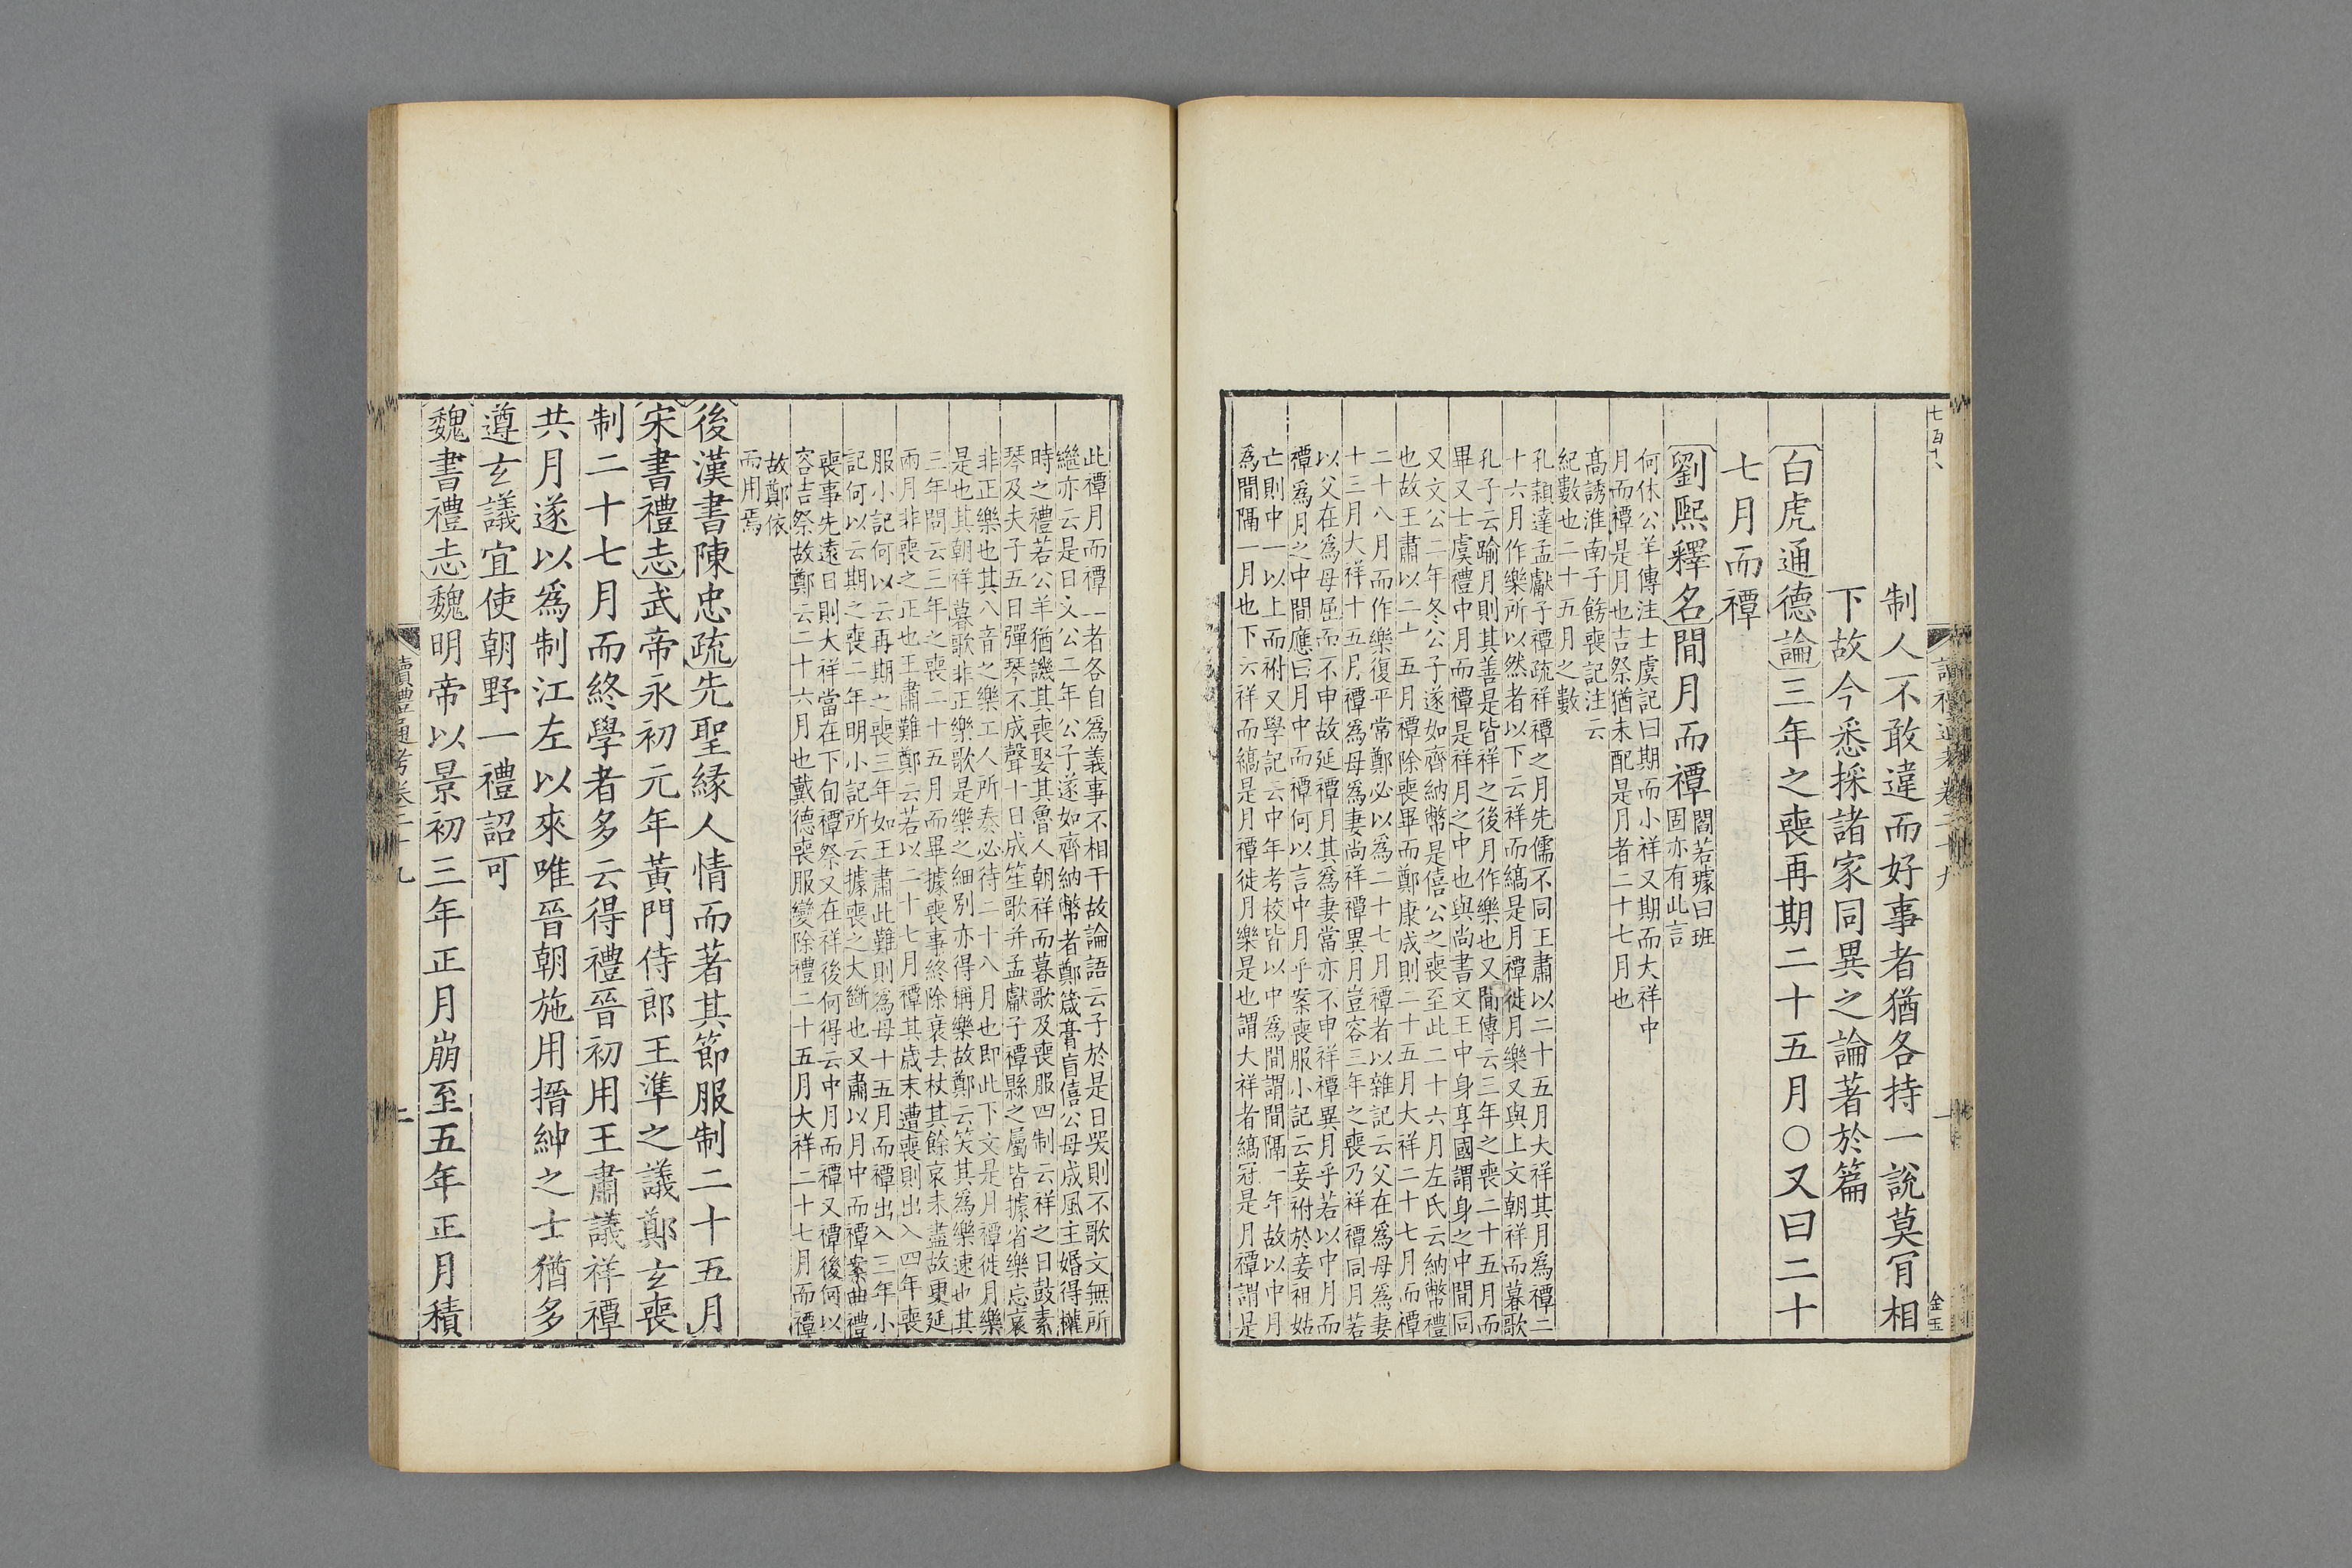 七百十八
讀禮通考卷二十九
一
金玉
制人不敢違而好事者猶各持一說莫肎相
下故今悉採諸家同異之論著於篇
白虎通德論三年之喪再期二十五月○又曰二十
七月而禫
劉熙釋名閒月而禫
閻若璩曰班
固亦有此言
何休公羊傳注士虞記曰期而小祥又期而大祥中
月而禫是月也吉祭猶未配是月者二十七月也
高誘淮南子飭喪記注云
紀數也二十五月之數
孔穎達孟獻子禫疏祥禫之月先儒不同王肅以二十五月大祥其月爲禫二
十六月作樂所以然者以下云祥而縞是月禫徙月樂又與上文朝祥而暮歌
孔子云踰月則其善是皆祥之後月作樂也又閒傳云三年之喪二十五月而
畢又士虞禮中月而禫是祥月之中也與尚書文王中身享國謂身之中閒同
又文公二年冬公子遂如齊納幣是僖公之喪至此二十六月左氏云納幣禮
也故王肅以二十五月禫除喪畢而鄭康成則二十五月大祥二十七月而禫
二十八月而作樂復平常鄭必以爲二十七月禫者以雜記云父在爲母爲妻
十三月大祥十五月禫爲母爲妻尚祥禫異月豈容三年之喪乃祥禫同月若
以父在爲母屈而不申故延禫月其爲妻當亦不申祥禫異月乎若以中月而
禫爲月之中閒應曰月中而禫何以言中月乎案喪服小記云妾祔於妾祖姑
亡則中一以上而祔又學記云中年考校皆以中爲閒謂閒隔一年故以中月
爲閒隔一月也下云祥而縞是月禫徙月樂是也謂大祥者縞冠是月禫謂是
此禫月而禫二者各自爲義事不相干故論語云子於是日哭則不歌文無所
繼亦云是日文公二年公子遂如齊納幣者鄭箴膏肓僖公母成風主婚得權
時之禮若公羊猶譏其喪娶其魯人朝祥而暮歌及喪服四制云祥之日鼓素
琴及夫子五日彈琴不成聲十日成笙歌并孟獻子禫縣之屬皆據省樂忘哀
非正樂也其八音之樂工人所奏必待二十八月也即此下文是月禫徙月樂
是也其朝祥暮歌非正樂歌是樂之細別亦得稱樂故鄭云笑其爲樂速也其
三年問云三年之喪二十五月而畢據喪事終除衰去杖其餘哀未盡故更延
兩月非喪之正也王肅難鄭云若以二十七月禫其歲末遭喪則出入四年喪
服小記何以云再期之喪三年如王肅此難則爲母十五月而禫出入三年小
記何以云期之喪二年明小記所云據喪之大斷也又肅以月中而禫案曲禮
喪事先遠日則大祥當在下旬禫祭又在祥後何得云中月而禫又禫後何以
容吉祭故鄭云二十六月也戴德喪服變除禮二十五月大祥二十七月而禫
故鄭依
而用焉
後漢書陳忠疏先聖緣人情而著其節服制二十五月
宋書禮志武帝永初元年黃門侍郎王準之議鄭玄喪
制二十七月而終學者多云得禮晉初用王肅議祥禫
共月遂以爲制江左以來唯晉朝施用搢紳之士猶多
遵玄議宜使朝野一禮詔可
魏書禮志魏明帝以景初三年正月崩至五年正月積
讀禮通考卷二十九
二